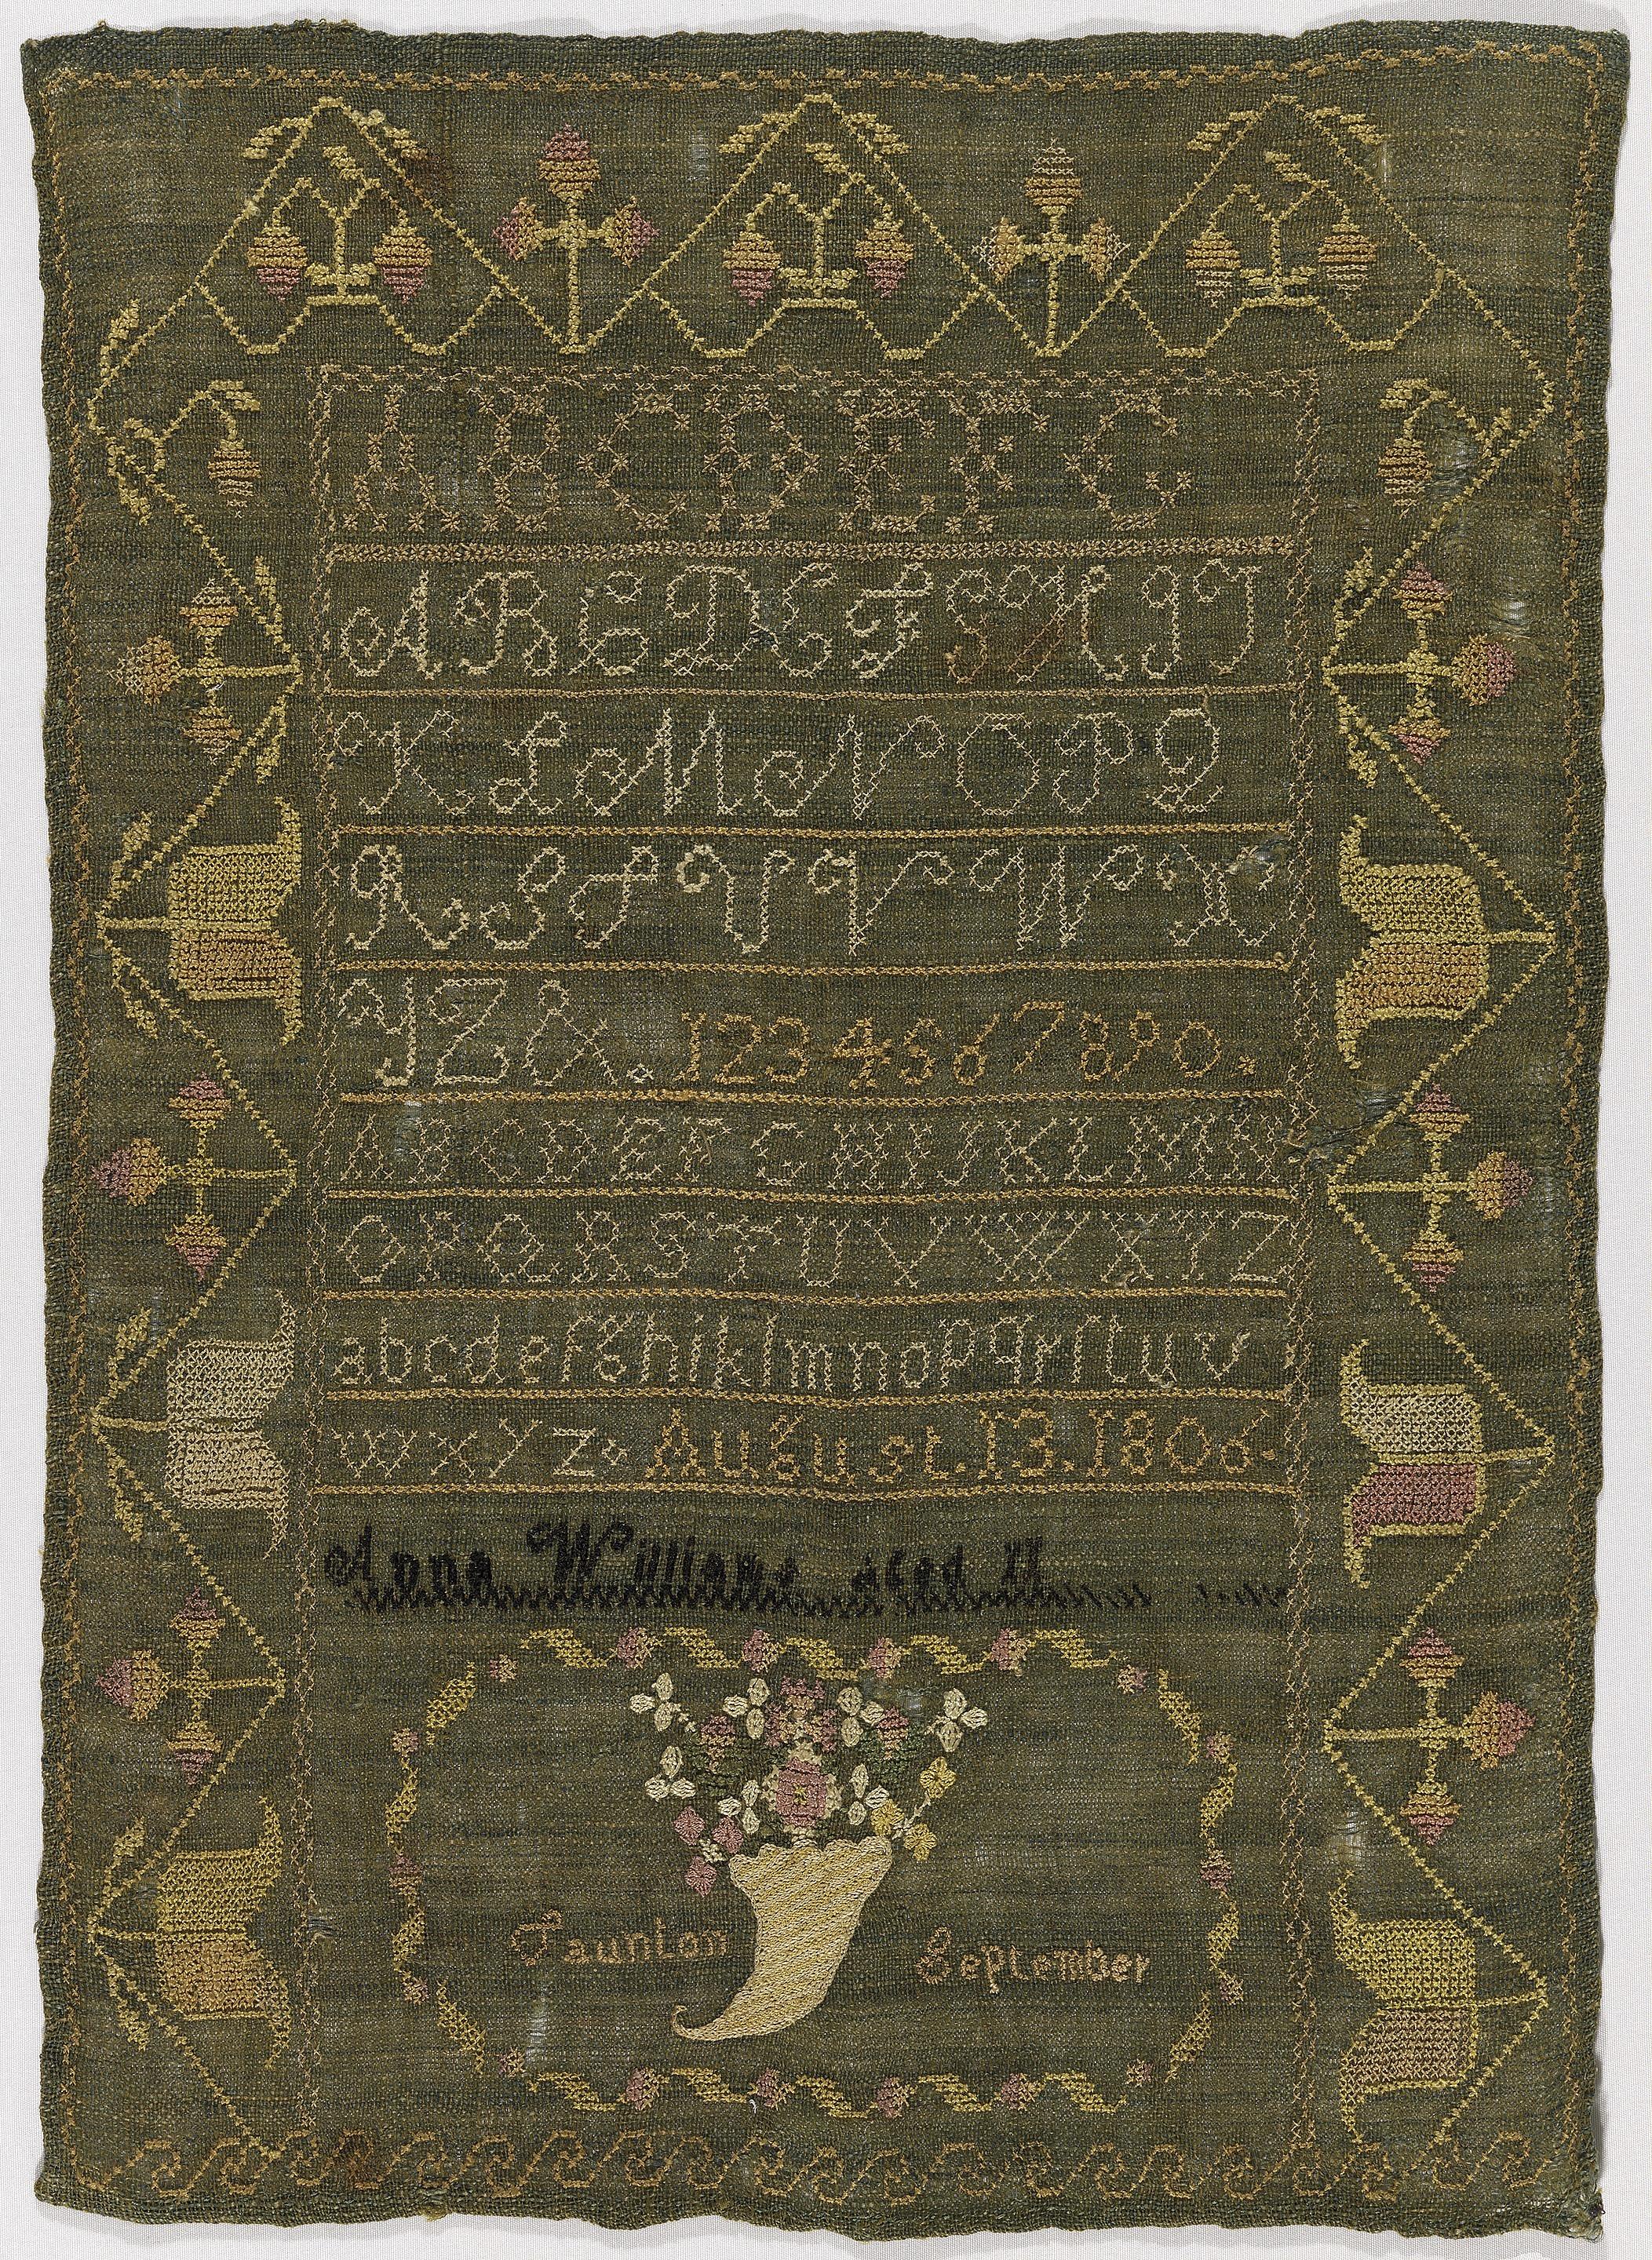 A B C D E F G
A B C D E F G H I J
K L M N O P Q
R S T U V W X
Y Z & . 1 2 3 4 5 6 7 8 9 0 .
A B C D E F G H I J K L M N
O P Q R S T U V W X Y Z
a b c d e f g h i j k l m n o p q r ſ t u v
w x y z & August. 13. 1806.
Anna Williams aged 11
Taunton September